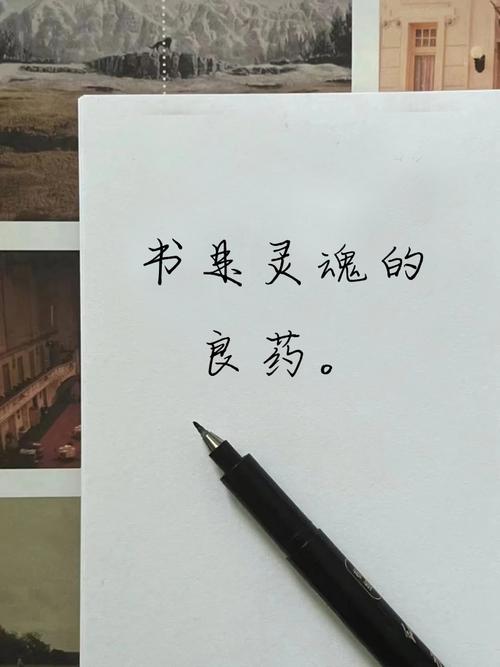 书是灵魂的
良药。